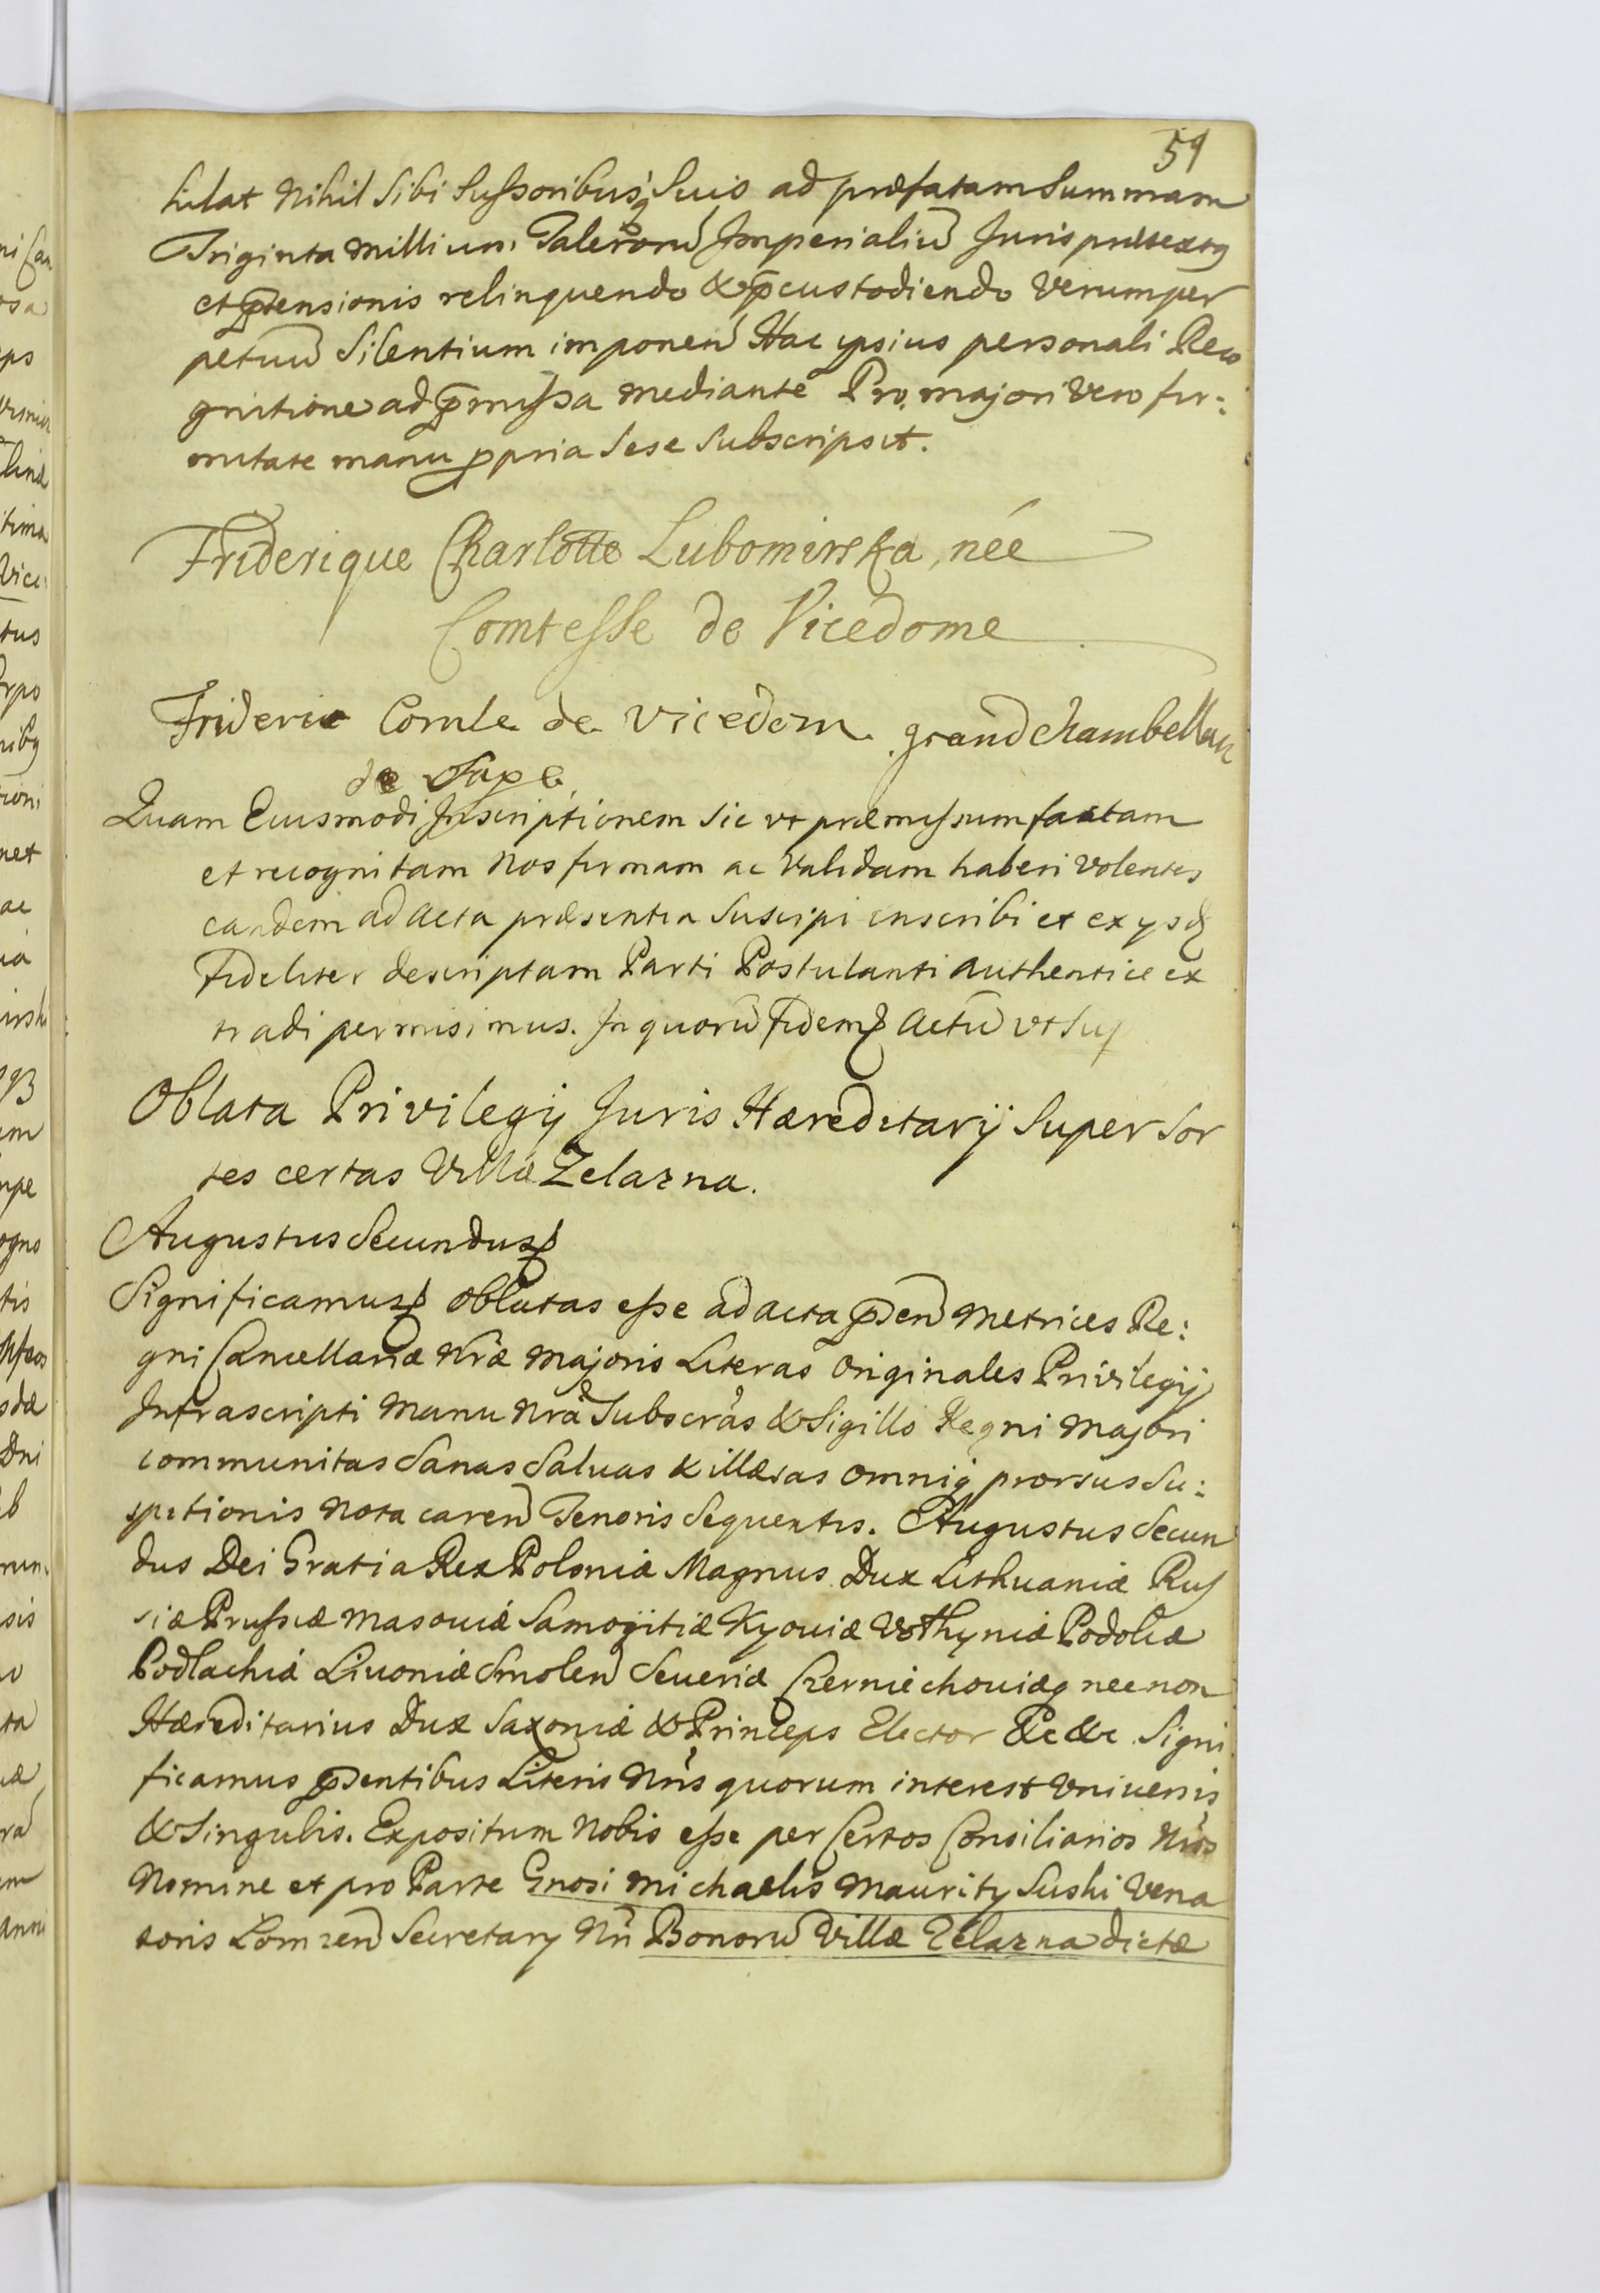 59
hilat Nihil Sibi Sussoribusq Suis ad præfatam Summam
Triginta Millium Talerorū Imperialiū Juris prætextq
et p̄tensionis relinquendo & p̄custodiendo Verum per
petuū Silentium imponen̄ Hac ipsius personali Reco
gnitione ad p̄missa mediante Pro majori Vero fir:
mitate manu ppria Sese Subscripsit.
Friderique Charlotte Lubomirska, née
Comtesse de Vicedome
Frideric Comte de Vicedom grand chambellan
de Saxe
Quam Eiusmodi Inscriptionem Sic vt præmissum factam
et recognitam Nos firmam ac Validam haberi Volentes
eandem ad acta præsentia Suscipi inscribi et ex ysd
Fideliter descriptam Parti Postulanti authentice ex
tradi permisimus. In quorū Fidem Actū vt Sup
Oblata Privilegij Juris Hæreditarij Super Sor
tes certas Villæ Zelazna.
Augustus Secundus
Significamus Oblatas esse ad acta p̄sen̄ Metrices Re:
gni Cancellariæ Nræ Majoris Literas Originales Privilegij
Infrascripti Manu Nrā Subscrās & Sigillo Regni Majori
communitas Sanas Saluas & illæsas omniq prorsus Su:
spitionis Nota caren̄ Tenoris Sequentis. Augustus Secun
dus Dei Gratia Rex Poloniæ Magnus Dux Lithuaniæ Rus
siæ Prussiæ Masouiæ Samogitiæ Kyouiæ Volhyniæ Podoliæ
Podlachiæ Liuoniæ Smolen̄ Seueriæ Czerniechouiæq necnon
Hæreditarius Dux Saxoniæ & Princeps Elector &c &c Signi
ficamus p̄sentibus Literis Nris quorum interest Vniuersis
& Singulis. Expositum Nobis esse per Certos Consiliarios Nros
Nomine et pro Parte Gnosi Michaelis Maurity Suski Vena
toris Lomzen̄ Secretary Nri Bonorū Villæ Zelazna dictæ